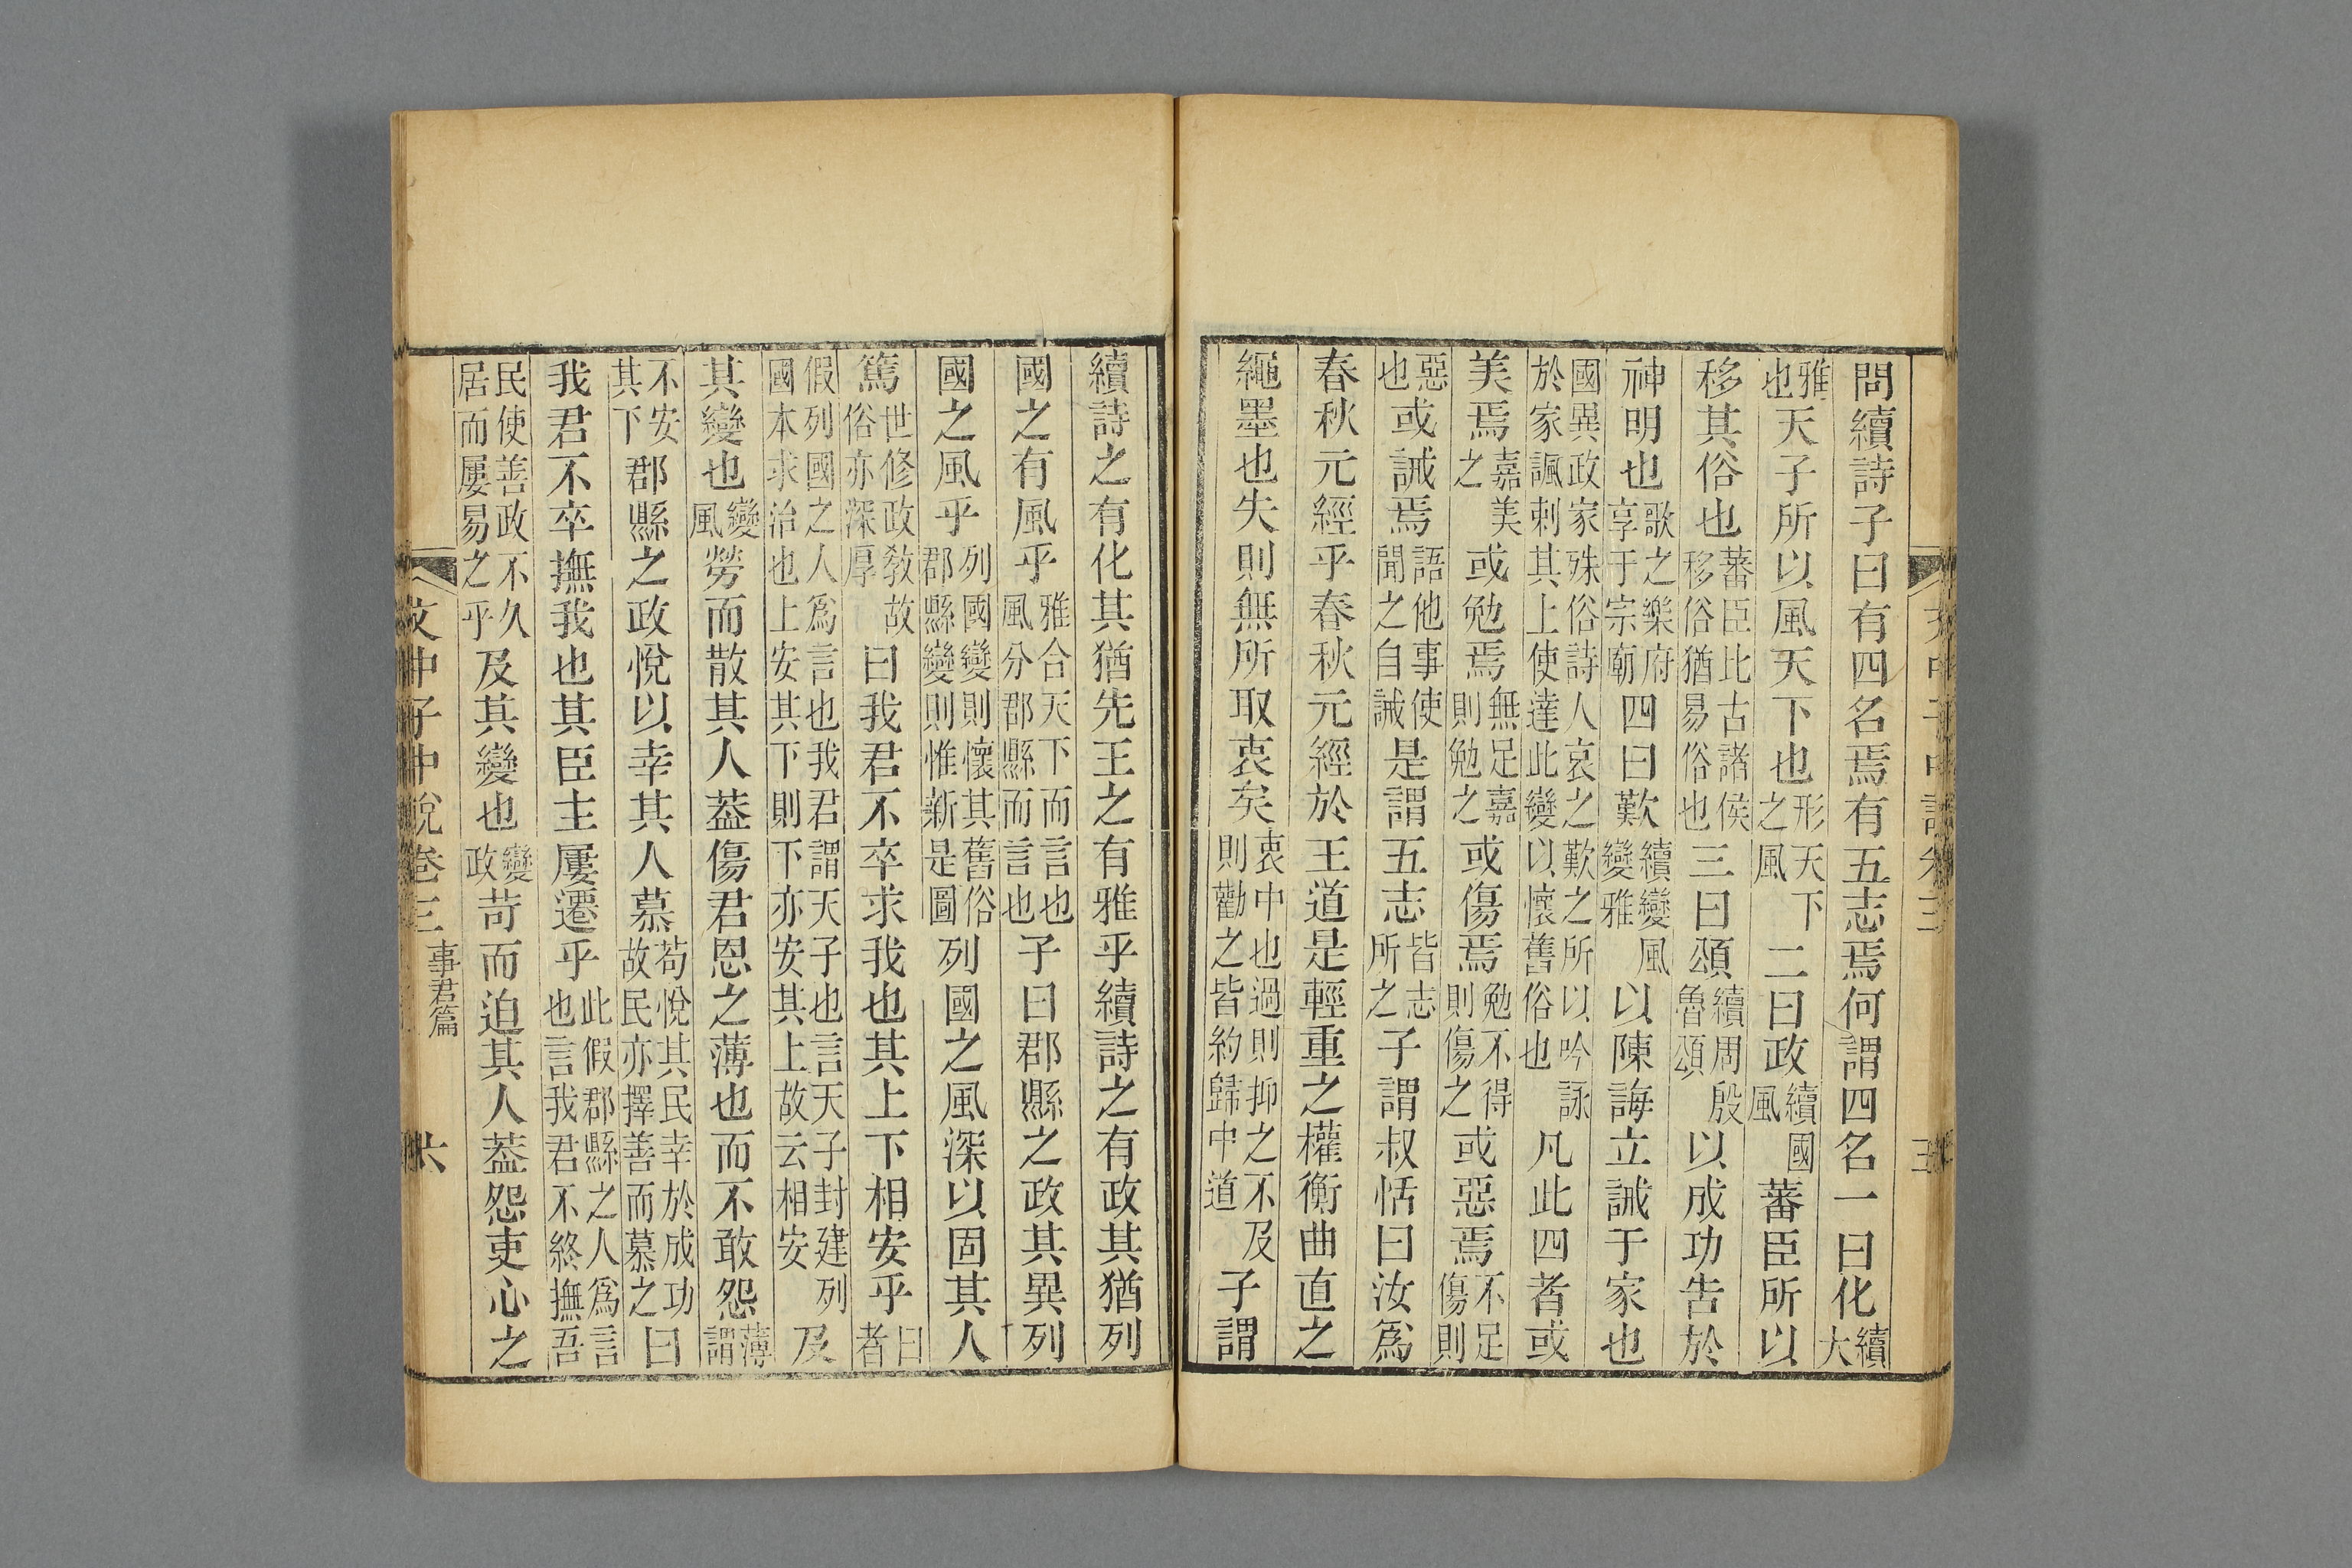 問續詩子曰有四名焉有五志焉何謂四名一曰化續大
雅也天子所以風天下也形天下之風二曰政續國風蕃臣所以
移其俗也蕃臣比古諸侯移俗猶易俗也三曰頌續周殷魯頌以成功告於
神明也歌之樂府享于宗廟四曰歎續變風變雅以陳誨立誡于家也
國異政家殊俗詩人哀之歎之所以吟詠於家諷刺其上使達此變以懷舊俗也凡此四者或
美焉嘉美之或勉焉無足嘉則勉之或傷焉勉不得則傷之或惡焉不足傷則
惡也或誡焉語他事使聞之自誡是謂五志皆志所之子謂叔恬曰汝爲
春秋元經乎春秋元經於王道是輕重之權衡曲直之
繩墨也失則無所取衷矣衷中也過則抑之不及則勸之皆約歸中道子謂
續詩之有化其猶先王之有雅乎續詩之有政其猶列
國之有風乎雅合天下而言也風分郡縣而言也子曰郡縣之政其異列
國之風乎列國變則懷其舊俗郡縣變則惟新是圖列國之風深以固其人
篤世修政敎故俗亦深厚曰我君不卒求我也其上下相安乎曰者
假列國之人爲言也我君謂天子也言天子封建列國本求治也上安其下則下亦安其上故云相安及
其變也變風勞而散其人葢傷君恩之薄也而不敢怨薄謂
不安其下郡縣之政悅以幸其人慕苟悅其民幸於成功故民亦擇善而慕之曰
我君不卒撫我也其臣主屢遷乎此假郡縣之人爲言也言我君不終撫吾
民使善政不久居而屢易之乎及其變也變政苛而迫其人葢怨吏心之
文中子中說卷三 事君篇 六